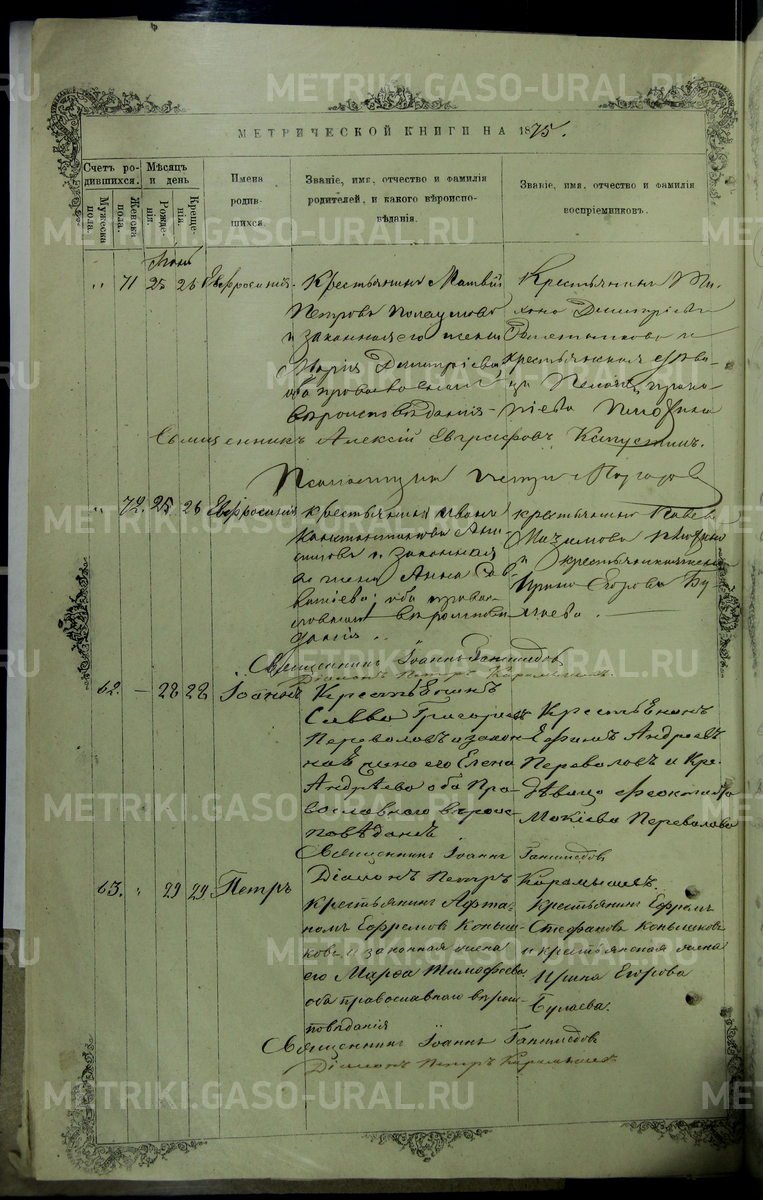 METRIKI.GASO-URAL.RU
МЕТРИЧЕСКОЙ КНИГИ НА 1875.
Счетъ родившихся.
Мужеска пола.
Женска пола.
Мѣсяцъ и день
Рожденія.
Крещенія.
Имена родившихся.
Званіе, имя, отчество и фамилія родителей, и какого вѣроисповѣданія.
Званіе, имя, отчество и фамилія воспріемниковъ.
71 25 26 Евфросинія
Крестьянинъ Матвѣй
Петровъ
и законная его жена
Марія Димитріева,
оба православнаго
вѣроисповѣданія
Крестьянинъ Ти-
хонъ Димитріевъ
и
крестьянская дѣви-
ца Пелагія
Священникъ Алексій Евграфовъ Капустинъ.
Псаломщикъ
72. 25 26 Евфросинія
крестьянинъ Иванъ
Константиновъ
и законная
его жена Анна Сав-
ватіева; оба право-
славнаго вѣроиспови-
данія
крестьянинъ Павелъ
Максимовъ
и крестьянская жена
Ирина Егорова Бу-
лаева.
Священникъ Іоаннъ Ганимедовъ
Діаконъ Петръ Карамышевъ
62. — 28 28 Іоаннъ
Крестьенинъ
Савва Григорьевъ
Переваловъ и закон-
ная Жена его Елена
Андрѣева оба Пра-
вославнаго вѣроис-
повѣданія
Крестьенинъ
Ефимъ Андреевъ
Переваловъ и Кре.
дѣвица Феоктиста
Мокіева Перевалова
Священникъ Іоаннъ Ганимедовъ
Діаконъ Петръ Карамышевъ.
63. „ 29 29 Петръ
Крестьянинъ Афта-
номъ Ефремовъ Коныш-
ковъ, и законная жена
его Марѳа Тимофеева
оба православнаго вѣроис-
повѣданія
Крестьянинъ Ефремъ
Стефановъ Конышковъ
и крестьянская жена
Ирина Егорова
Булаева.
Священникъ Іоаннъ Ганимедовъ
Діаконъ Петръ Карамышевъ